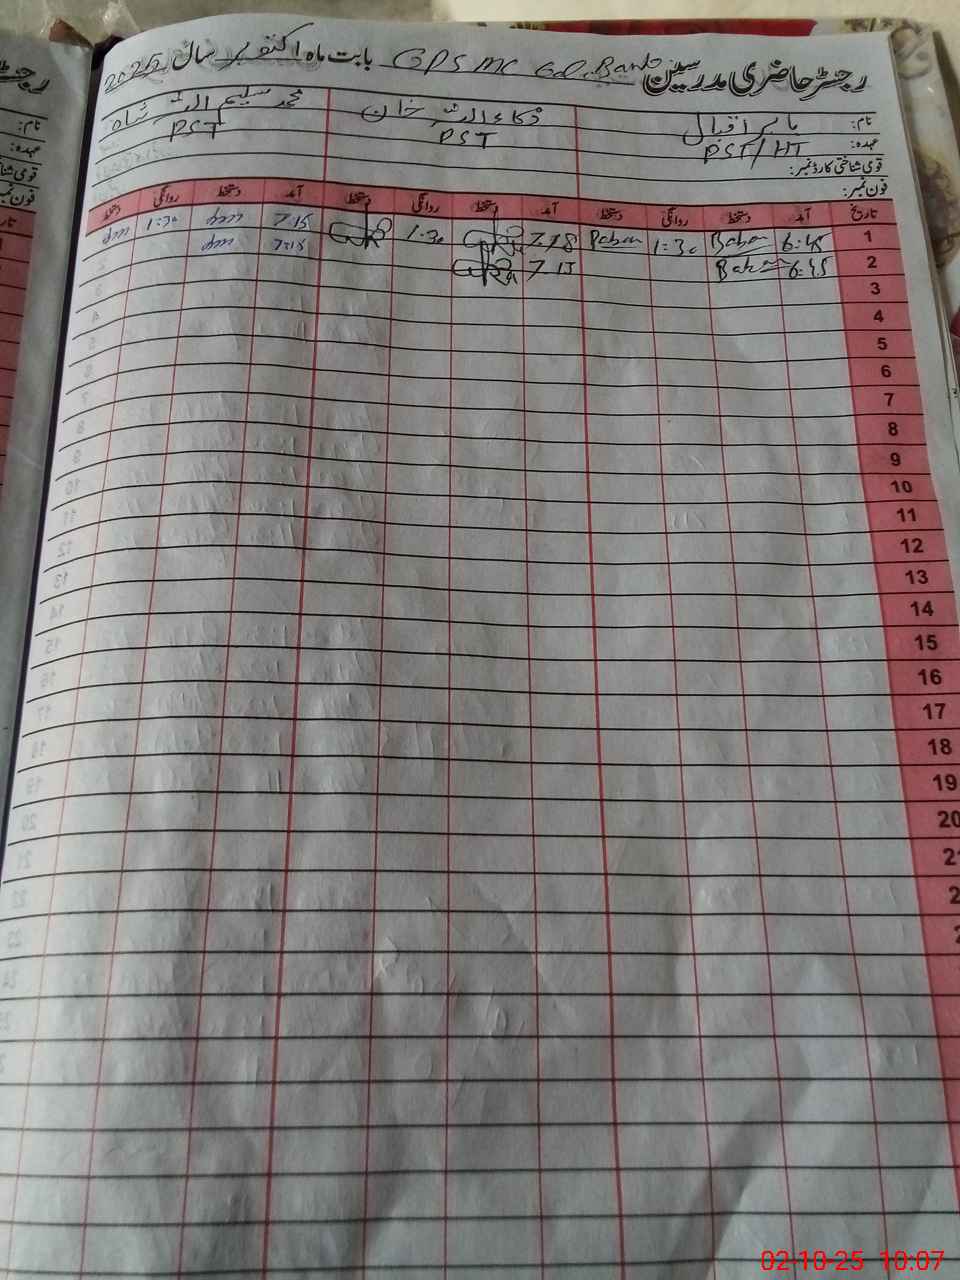 رجسٹر حاضری مدرسین GPS MC Gol. Banlo بابت ماہ اکتوبر سال 2025
نام: بابر اقبال ذکاء اللہ خان محمد سلیم اللہ شاہ
عہدہ: PST/HT PST PST
قومی شناختی کارڈ نمبر:
فون نمبر:
تاریخ آمد دستخط روانگی دستخط آمد دستخط روانگی دستخط آمد دستخط روانگی دستخط
1 6:45 Babar 1:30 Babar 7:18 1:30 7:15 1:30
2 6:45 Babar 7:15 7:15
3
4
5
6
7
8
9
10
11
12
13
14
15
16
17
18
19
20
02-10-25 10:07